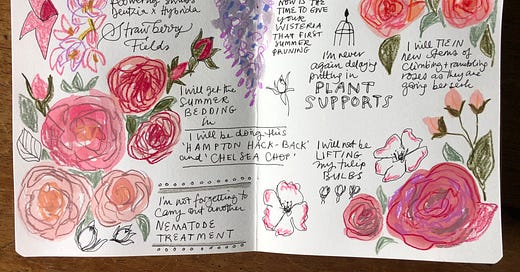 flowering shrubs
deutzia x hybrida
Strawberry
Fields
I will get the
SUMMER
BEDDING
in
I will be doing this
'HAMPTON HACK-BACK'
and 'CHELSEA CHOP'
I'm not forgetting to
carry out another
NEMATODE
TREATMENT
NOW IS THE
TIME TO GIVE
YOUR
WISTERIA
THAT FIRST
SUMMER
PRUNING
I'm never
again delaying
putting in
PLANT
SUPPORTS
I will TIE IN
new stems of
climbing + rambling
roses as they are
going berserk
I will not be
LIFTING
my tulip
BULBS